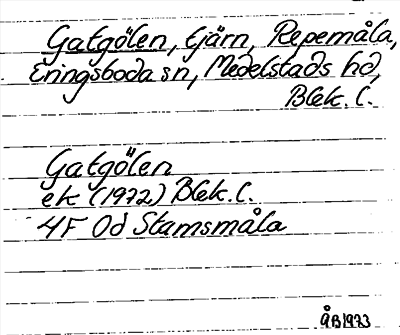 Gatgölen, tjärn, Repemåla,
Eringsboda sn, Medelstads hd,
Blek. l.
Gatgölen
ek (1972) Blek. l.
4F 0d Stamsmåla
ÅB 1973